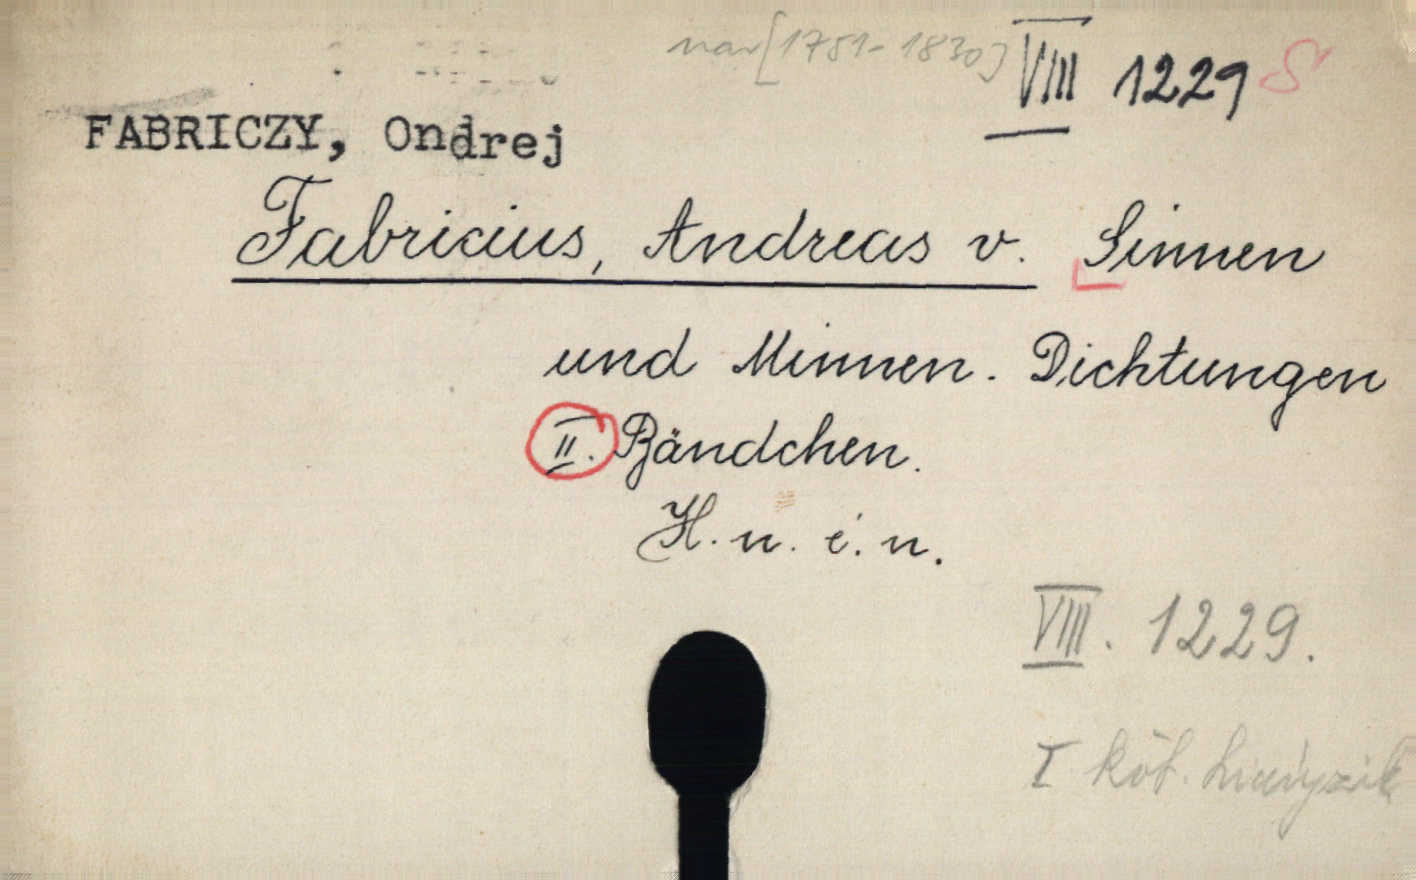 nar [1751-1830] VIII 1229 S
FABRICZY, Ondrej
Fabricius, Andreas v. Sinnen
und Minnen. Dichtungen
II. Bändchen.
H. n. é. n.
VIII. 1229.
I köt. hiányzik